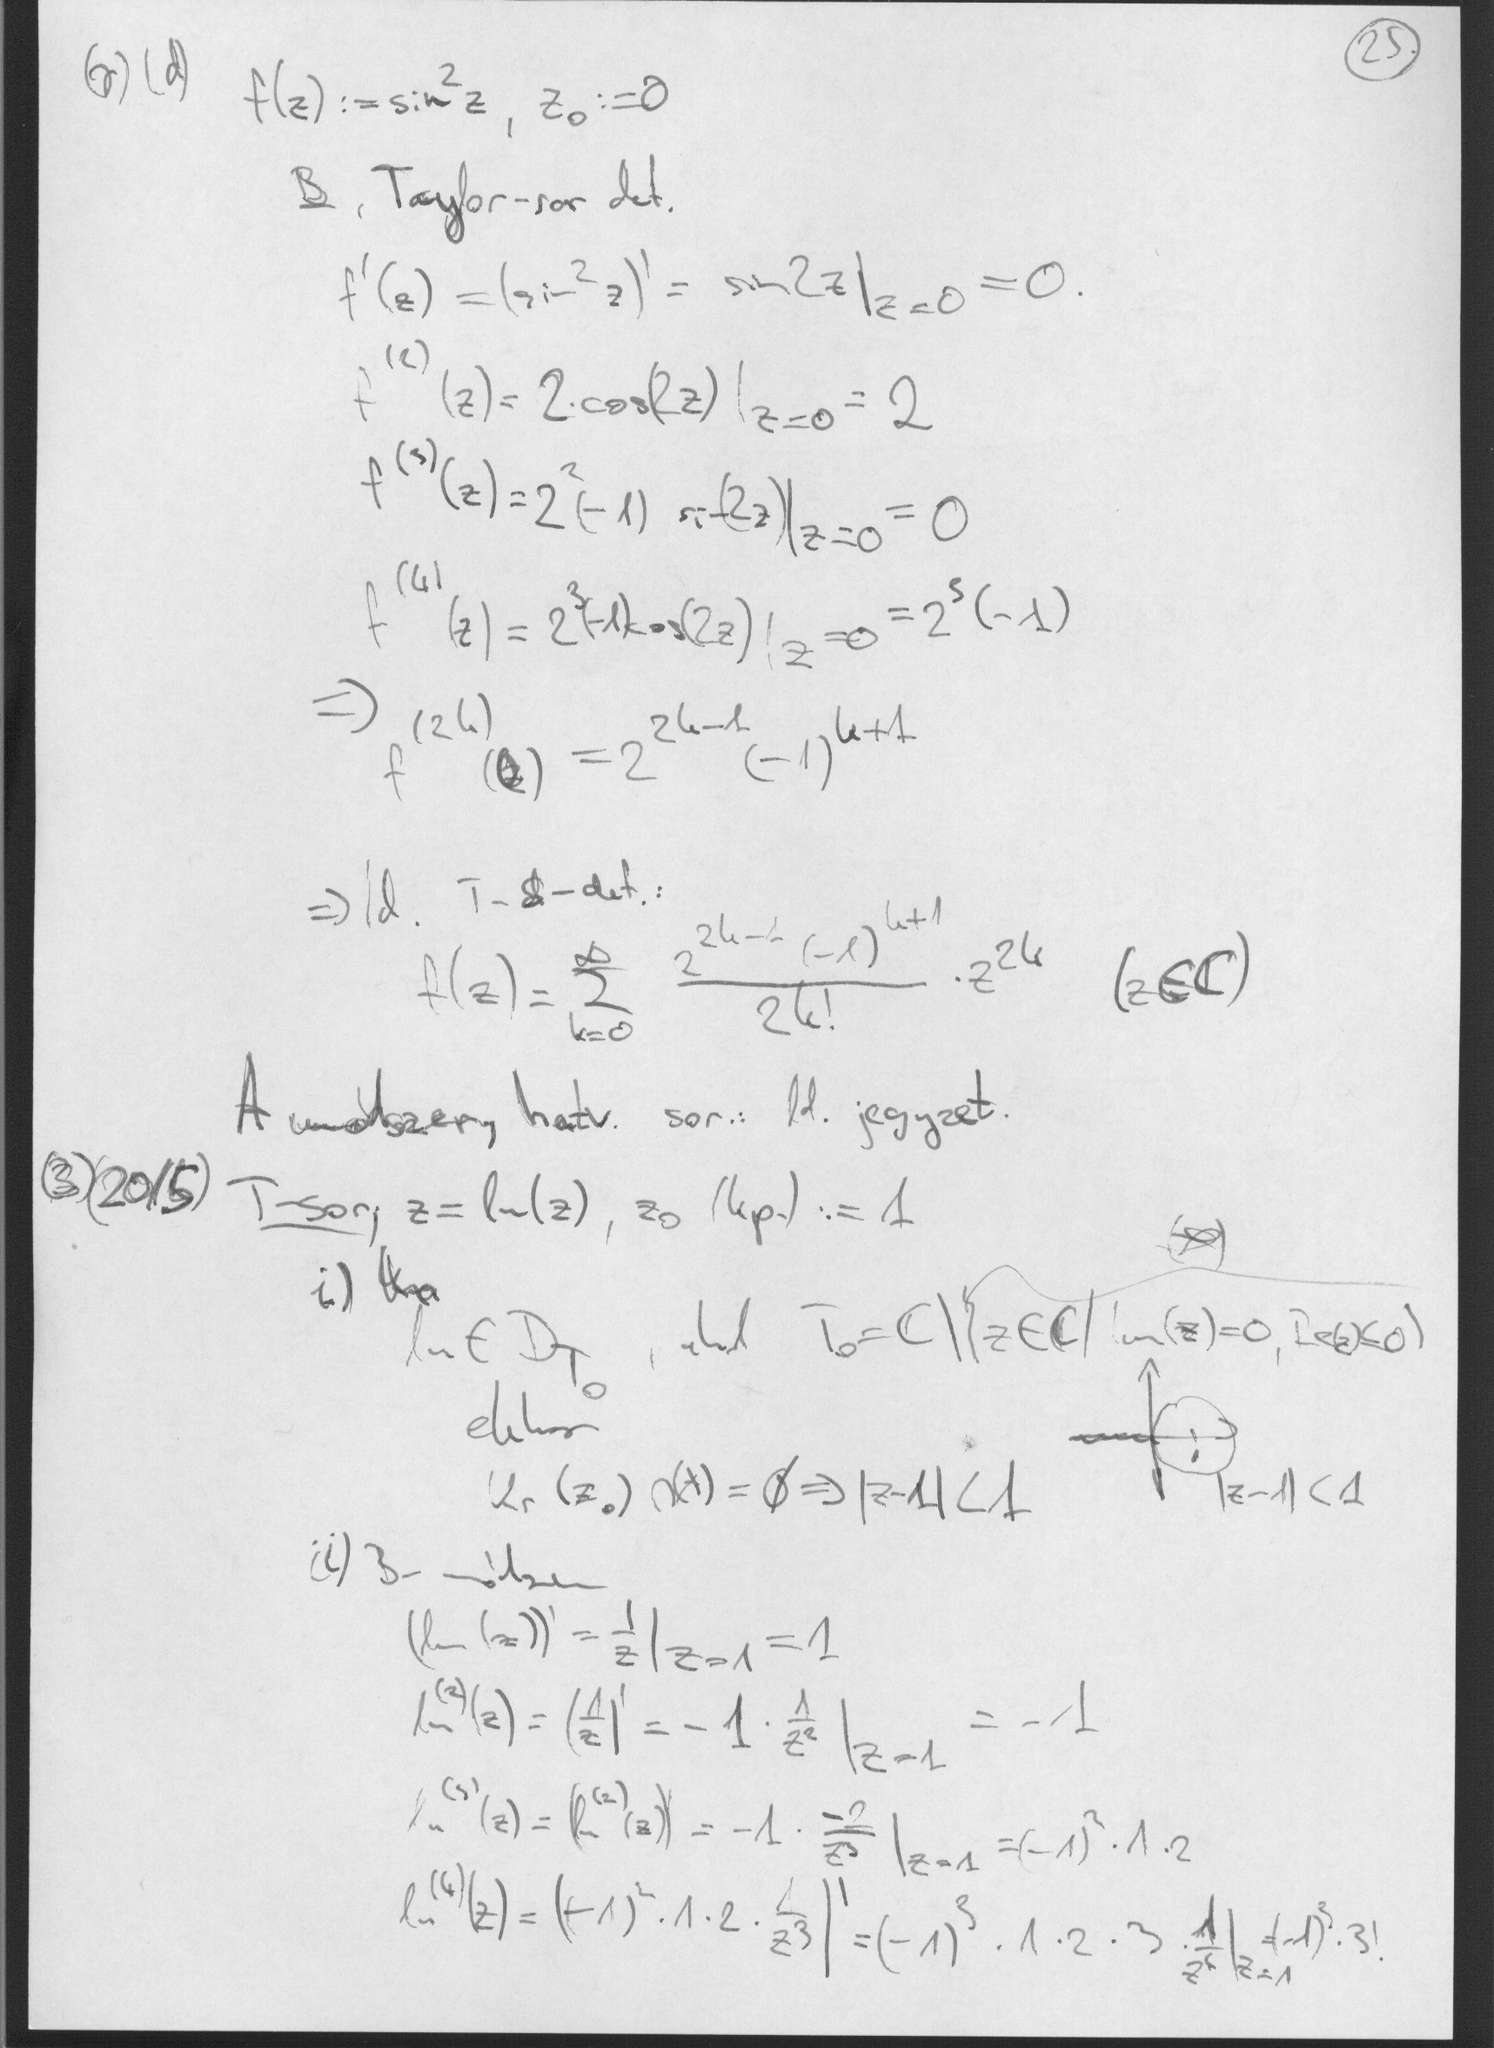 25.
(d) f(z) := sin²z, z₀ := 0
B, Taylor-sor det.
f'(z) = (sin²z)' = sin2z|z=0 = 0.
f⁽²⁾(z) = 2·cos(2z)|z=0 = 2
f⁽³⁾(z) = 2²(-1) sin(2z)|z=0 = 0
f⁽⁴⁾(z) = 2³(-1)cos(2z)|z=0 = 2³(-1)
⇒ f^(2k)(0) = 2^(2k-1) (-1)^(k+1)
⇒ ld. T-s-det.:
f(z) = ∑_{k=0}^{∞} 2^(2k-1) (-1)^(k+1) / 2k! · z^(2k) (z∈ℂ)
A módszer, hatv. sor.: ld. jegyzet.
(3)(20/5) T-sor, z = ln(z), z₀ (kp.) := 1
(*)
i) Ha
ln ∈ D_{T₀}, ahol T₀ = ℂ\{z∈ℂ | Im(z)=0, Re(z)≤0}
ekkor
Kr(z₀) ∩ (*) = ∅ ⇒ |z-1| < 1
|z-1| < 1
ii) B-módszer
(ln(z))' = 1/z |z=1 = 1
ln⁽²⁾(z) = (1/z)' = -1 · 1/z² |z=1 = -1
ln⁽³⁾(z) = (ln⁽²⁾(z))' = -1 · -2/z³ |z=1 = (-1)² · 1 · 2
ln⁽⁴⁾(z) = (-1)² · 1 · 2 · 1/z³ |' = (-1)³ · 1 · 2 · 3 · 1/z⁴ |z=1 = (-1)³ · 3!